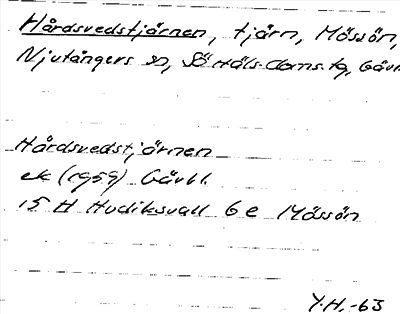 Hårdsvedstjärnen, tjärn, Mössön,
Njutångers sn, Sö Häls. doms. tg, Gävl.
Hårdsvedstjärnen
ek (1959) Gävbl.
15 H Hudiksvall 6 e Mössön
Y.H. -63